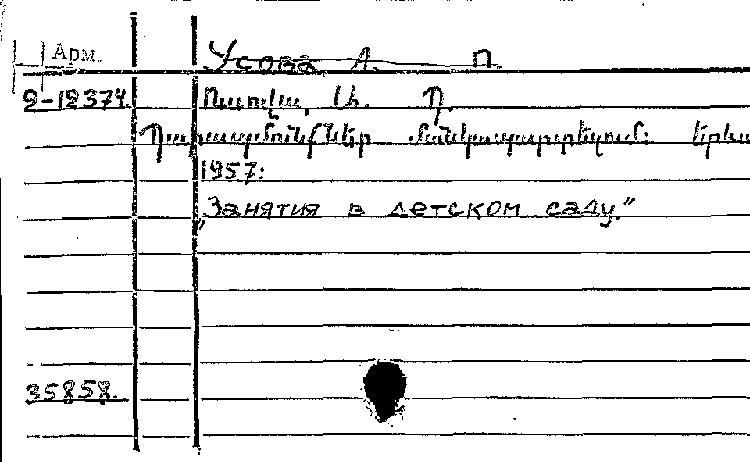 Арм. Усова А. П.
2-12374. Ուսովա, Ա. Պ.
Պարապմունքներ մանկապարտեզում: Երևա
1957:
„Занятия в детском саду.“
35858.